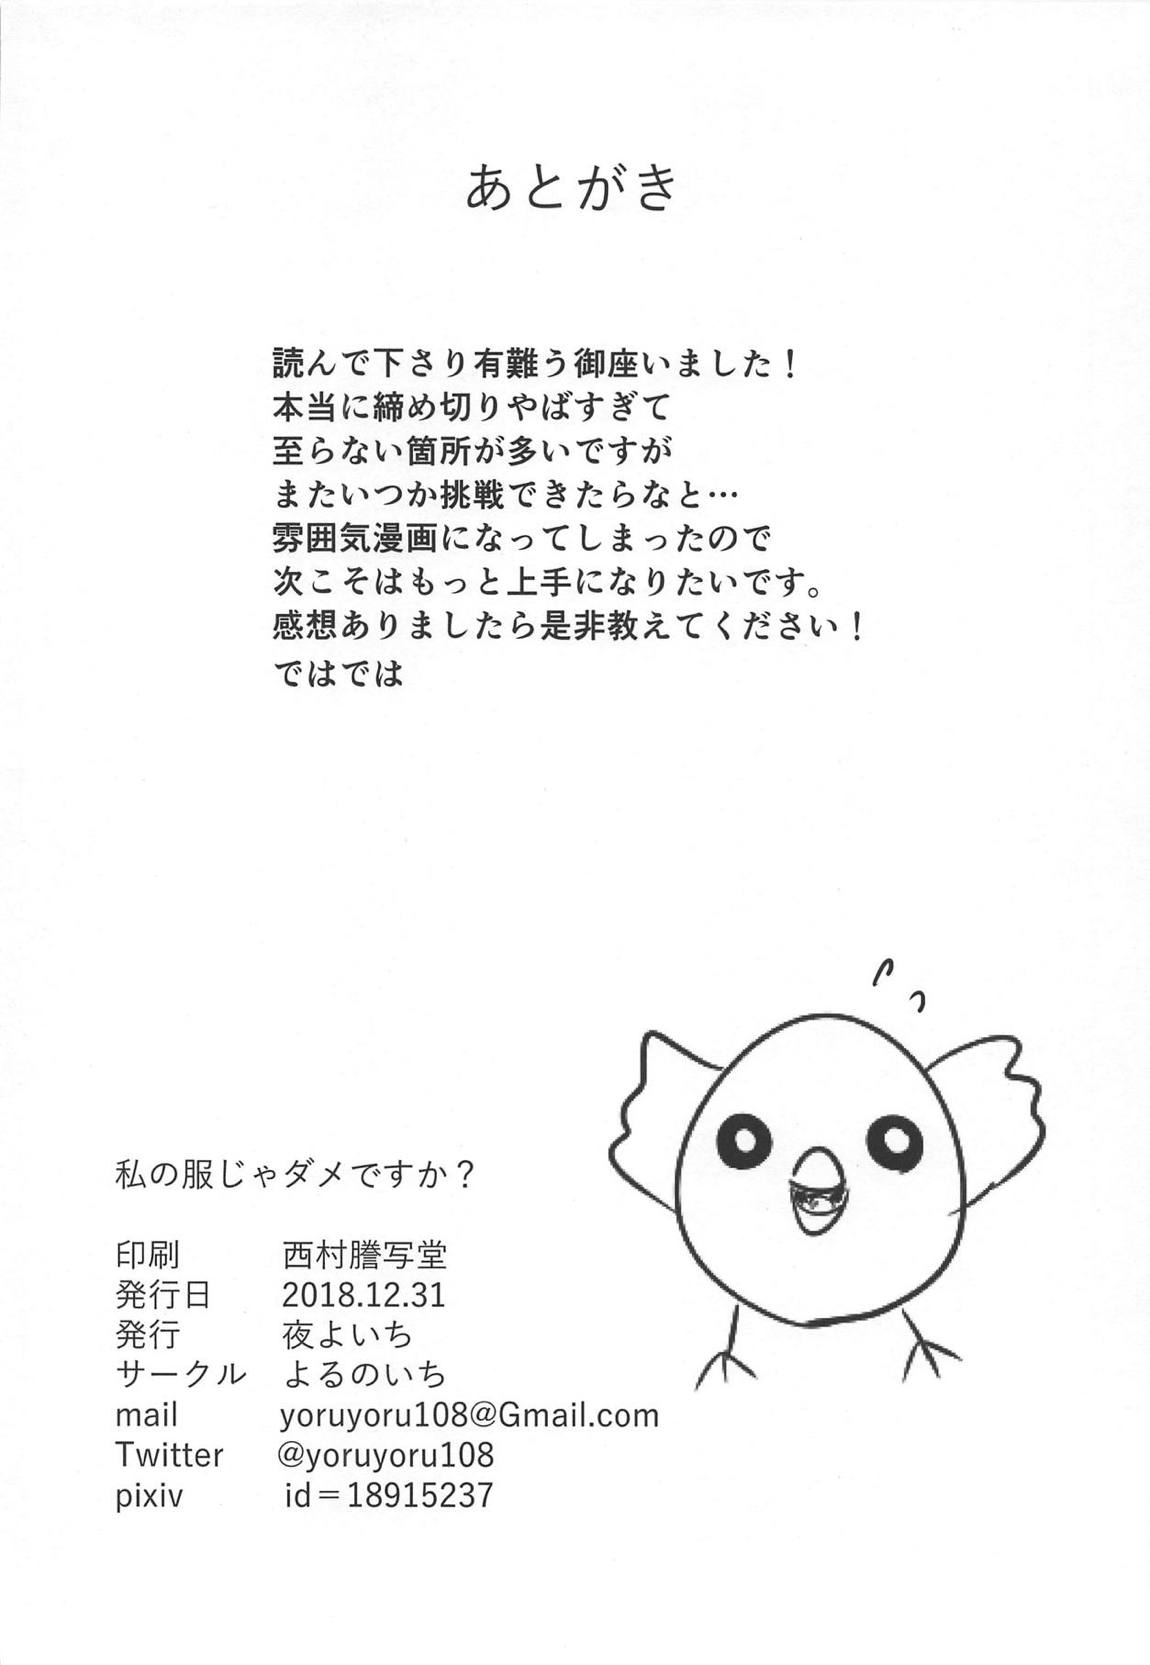 あとがき
読んで下さり有難う御座いました！
本当に締め切りやばすぎて
至らない箇所が多いですが
またいつか挑戦できたらなと…
雰囲気漫画になってしまったので
次こそはもっと上手になりたいです。
感想ありましたら是非教えてください！
ではでは
私の服じゃダメですか？
印刷 西村謄写堂
発行日 2018.12.31
発行 夜よいち
サークル よるのいち
mail yoruyoru108@Gmail.com
Twitter @yoruyoru108
pixiv id＝18915237